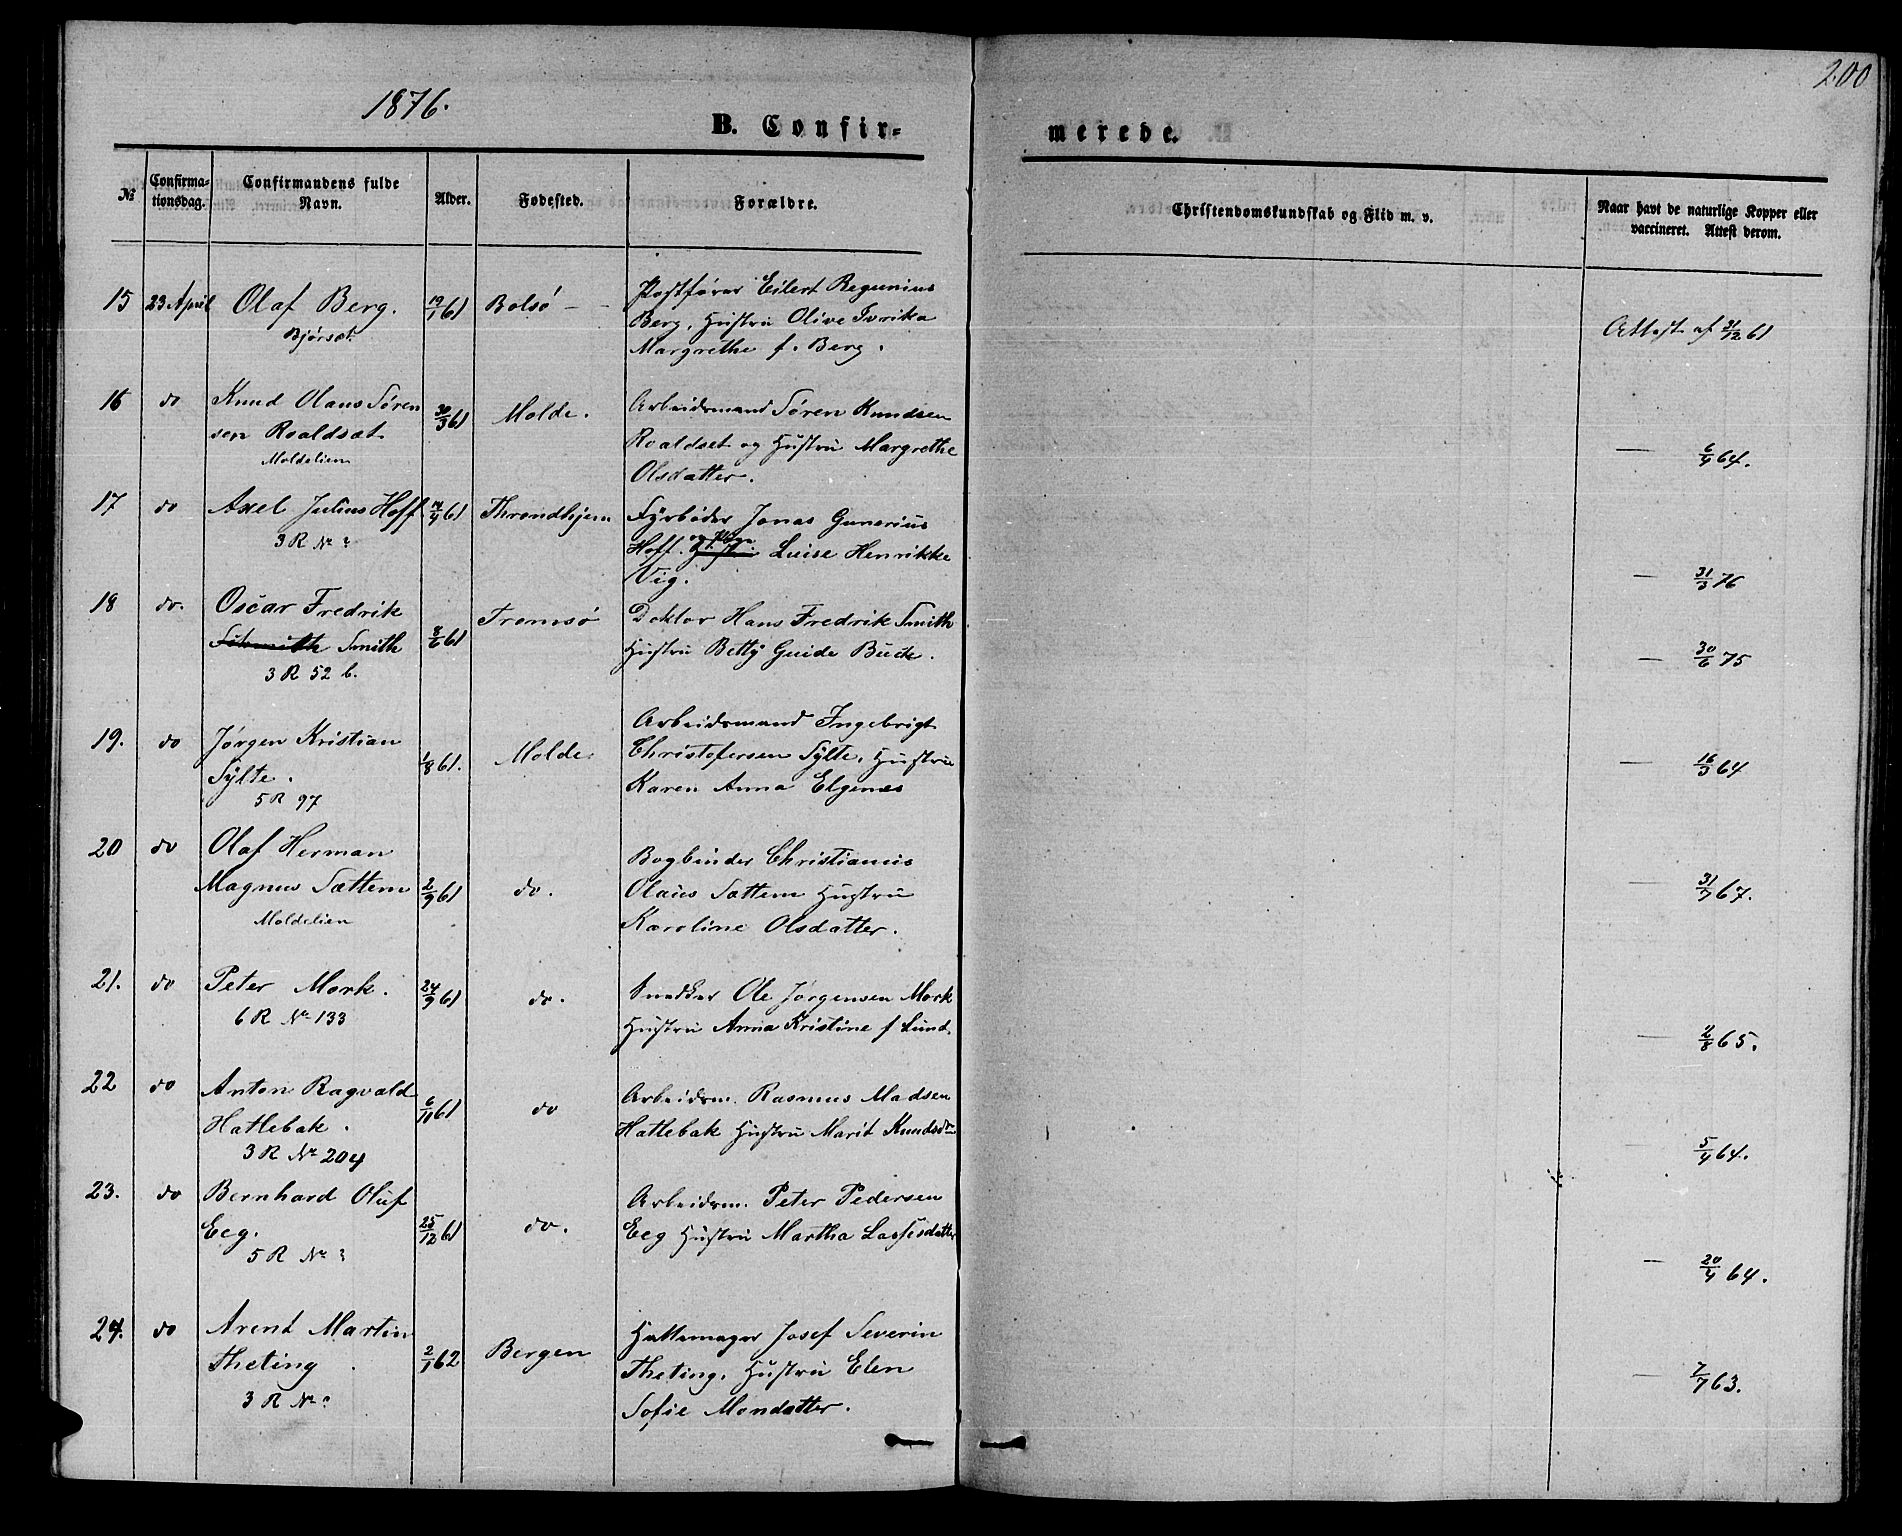 1876.
200
B. Confir-
merede.
№
Confirma-
tionsdag.
Confirmandens fulde
Navn.
Alder.
Fødested.
Forældre.
Christendomskundskab og Flid m. v.
Naar havt de naturlige Kopper eller
vaccineret. Attest derom.
15 23 April Olaf Berg. 19/1 61 Bolsø —
Bjørset.
Postfører Eilert Regunius
Berg, Hustru Olive
Margrethe f. Berg.
Attest af 31/12 61
16 do Knud Olaus Søren
sen Roaldset
Moldelien
30/3 61 Molde.
Arbeidsmand Søren Knudsen
Roaldset og Hustru Margrethe
Olsdatter.
— 6/4 64.
17 do Axel Julius Hoff. 14/4 61 Throndhjem
3 R No ?
Fyrbøder Jonas Gunerius
Hoff. Luise Henrikke
Vig.
— 31/3 76
18 do. Oscar Fredrik
Smith
3 R 52 b.
8/6 61 Tromsø
Doktor Hans Fredrik Smith
Hustru Betty Guide Buck.
— 30/6 75
19. do Jørgen Kristian
Sylte.
5 R 97
1/8 61. Molde.
Arbeidsmand Ingebrigt
Christofersen Sylte, Hustru
Karen Anna Elgenes
— 16/3 64
20 do Olaf Herman
Magnus Sættem
Moldelien
2/9 61 do.
Bogbinder Christianus
Olaus Sættem Hustru
Karoline Olsdatter.
— 31/7 67.
21. do Peter Mork.
6 R No 133
24/9 61 do.
Snedker Ole Jørgensen Mork
Hustru Anna Kristine f Lund.
— 2/8 65.
22 do Anton Ragvald
Hatlebak.
3 R No 204
6/11 61 do
Arbeidsm. Rasmus Madsen
Hatlebak Hustru Marit Knudsdr
— 5/4 64.
23. do Bernhard Oluf
Eeg.
5 R No ?
25/12 61 do.
Arbeidsm. Peter Pedersen
Eeg Hustru Martha Lassesdatter
— 20/4 64.
24. do Arent Martin
Theting.
3 R No ?
2/1 62 Bergen
Hattemager Josef Severin
Theting, Hustru Elen
Sofie Monsdatter.
— 7/7 63.